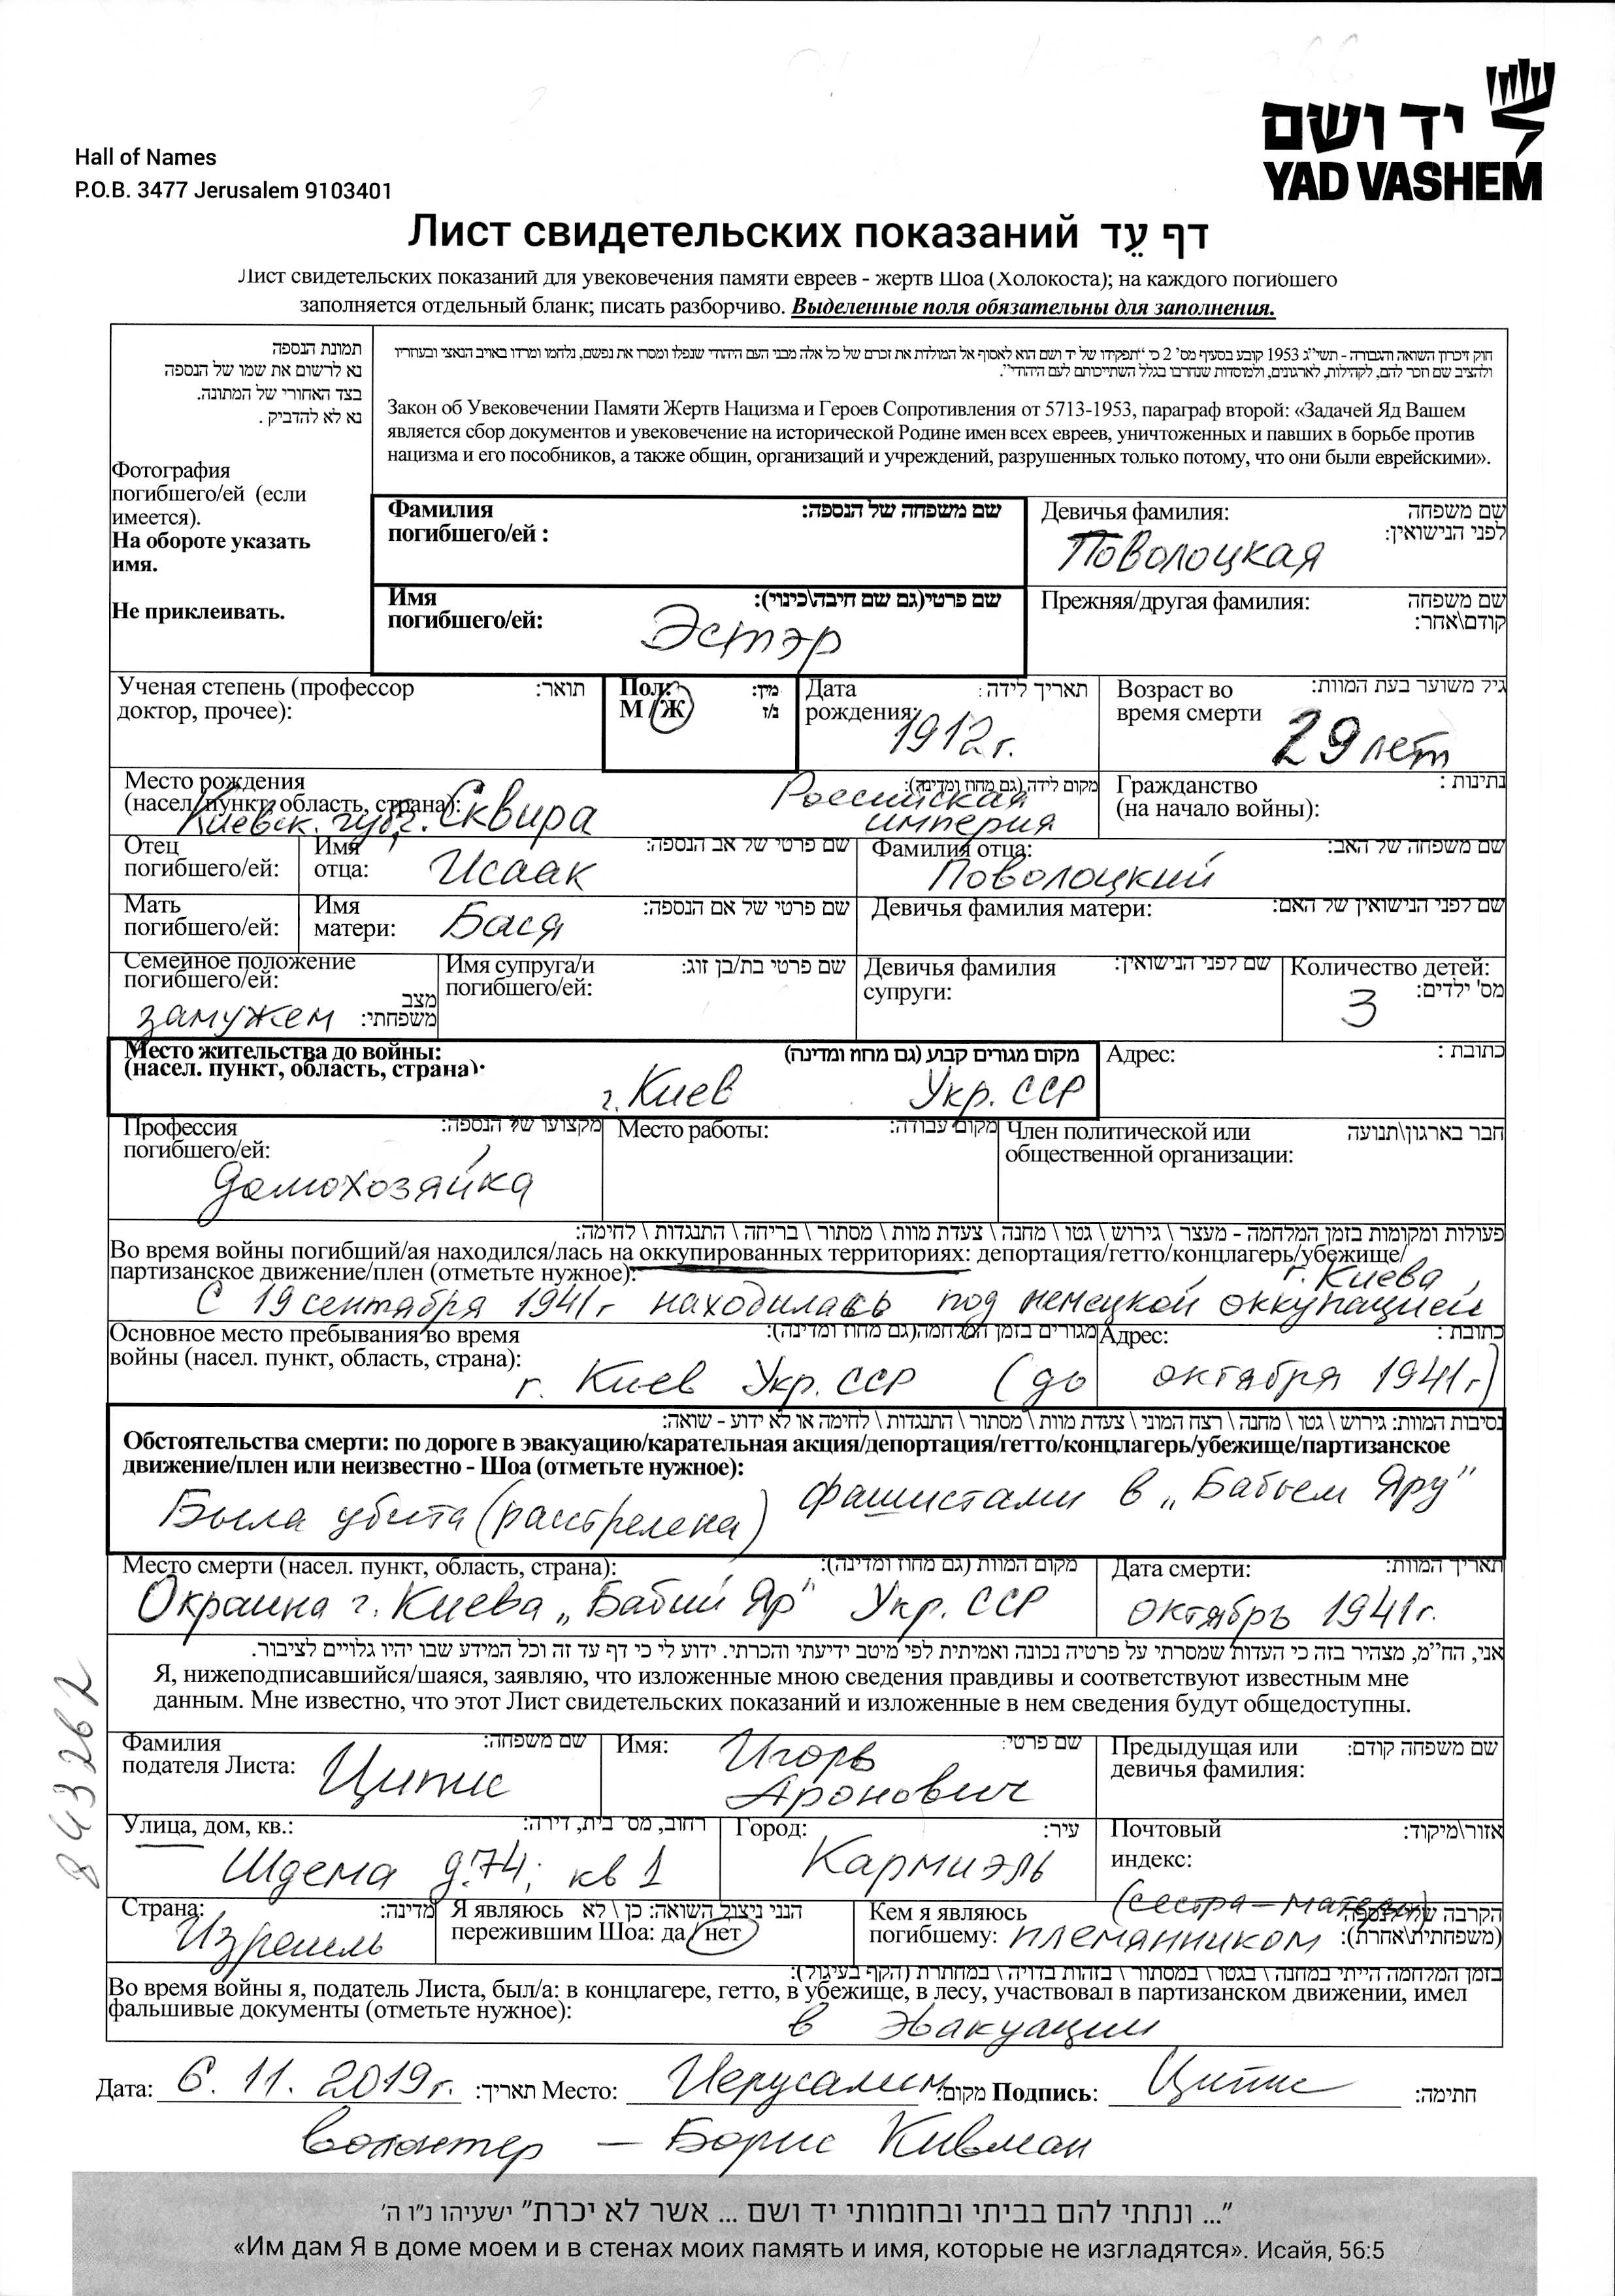 יד ושם
YAD VASHEM
Hall of Names
P.O.B. 3477 Jerusalem 9103401
Лист свидетельских показаний דף עֵד
Лист свидетельских показаний для увековечения памяти евреев - жертв Шоа (Холокоста); на каждого погибшего
заполняется отдельный бланк; писать разборчиво. Выделенные поля обязательны для заполнения.
תמונת הנספה
נא לרשום את שמו של הנספה
בצד האחורי של המתונה.
נא לא להדביק .
Фотография
погибшего/ей (если
имеется).
На обороте указать
имя.
Не приклеивать.
חוק זיכרון השואה והגבורה - תשי"ג 1953 קובע בסעיף מס' 2 כי "תפקידו של יד ושם הוא לאסוף אל המולדת את זכרם של כל אלה מבני העם היהודי שנפלו ומסרו את נפשם, נלחמו ומרדו באויב הנאצי ובעוזריו
ולהציב שם וזכר להם, לקהילות, לארגונים, ולמוסדות שנחרבו בגלל השתייכותם לעם היהודי".
Закон об Увековечении Памяти Жертв Нацизма и Героев Сопротивления от 5713-1953, параграф второй: «Задачей Яд Вашем
является сбор документов и увековечение на исторической Родине имен всех евреев, уничтоженных и павших в борьбе против
нацизма и его пособников, а также общин, организаций и учреждений, разрушенных только потому, что они были еврейскими».
Фамилия погибшего/ей : שם משפחה של הנספה:
Девичья фамилия: שם משפחה לפני הנישואין:
Поволоцкая
Имя погибшего/ей: שם פרטי(גם שם חיבה\כינוי):
Эстэр
Прежняя/другая фамилия: שם משפחה קודם\אחר:
Ученая степень (профессор доктор, прочее): תואר:
Пол: מין:
М / Ж נ/ז
Дата рождения: תאריך לידה:
1912 г.
Возраст во время смерти גיל משוער בעת המוות:
29 лет
Место рождения מקום לידה (גם מחוז ומדינה):
(насел. пункт, область, страна):
Киевск. губ. г. Сквира Российская
империя
Гражданство (на начало войны): נתינות :
Отец погибшего/ей: Имя отца: שם פרטי של אב הנספה:
Исаак
Фамилия отца: שם משפחה של האב:
Поволоцкий
Мать погибшего/ей: Имя матери: שם פרטי של אם הנספה:
Бася
Девичья фамилия матери: שם לפני הנישואין של האם:
Семейное положение погибшего/ей: מצב משפחתי:
замужем
Имя супруга/и погибшего/ей: שם פרטי בת/בן זוג:
Девичья фамилия супруги: שם לפני הנישואין:
Количество детей: מס' ילדים:
3
Место жительства до войны: מקום מגורים קבוע (גם מחוז ומדינה)
(насел. пункт, область, страна):
г. Киев Укр. ССР
Адрес: כתובת :
Профессия погибшего/ей: מקצועו של הנספה:
домохозяйка
Место работы: מקום עבודה:
Член политической или общественной организации: חבר בארגון\תנועה
פעולות ומקומות בזמן המלחמה - מעצר \ גירוש \ גטו \ מחנה \ צעדת מוות \ מסתור \ בריחה \ התנגדות \ לחימה:
Во время войны погибший/ая находился/лась на оккупированных территориях: депортация/гетто/концлагерь/убежище/
партизанское движение/плен (отметьте нужное):
г. Киева
С 19 сентября 1941г находилась под немецкой оккупацией
Основное место пребывания во время מגורים בזמן המלחמה(גם מחוז ומדינה):
войны (насел. пункт, область, страна):
Адрес: כתובת :
г. Киев Укр. ССР (до октября 1941г)
נסיבות המוות: גירוש \ גטו \ מחנה \ רצח המוני \ צעדת מוות \ מסתור \ התנגדות \ לחימה או לא ידוע - שואה:
Обстоятельства смерти: по дороге в эвакуацию/карательная акция/депортация/гетто/концлагерь/убежище/партизанское
движение/плен или неизвестно - Шоа (отметьте нужное):
Была убита (расстрелена) фашистами в „Бабьем Яру"
Место смерти (насел. пункт, область, страна): מקום המוות (גם מחוז ומדינה):
Окраина г. Киева „Бабий Яр" Укр. ССР
Дата смерти: תאריך המוות:
октябрь 1941г.
אני, הח"מ, מצהיר בזה כי העדות שמסרתי על פרטיה נכונה ואמיתית לפי מיטב ידיעתי והכרתי. ידוע לי כי דף עד זה וכל המידע שבו יהיו גלויים לציבור.
Я, нижеподписавшийся/шаяся, заявляю, что изложенные мною сведения правдивы и соответствуют известным мне
данным. Мне известно, что этот Лист свидетельских показаний и изложенные в нем сведения будут общедоступны.
843262
Фамилия подателя Листа: שם משפחה:
Ципис
Имя: שם פרטי:
Игорь
Аронович
Предыдущая или девичья фамилия: שם משפחה קודם:
Улица, дом, кв.: רחוב, מס' בית, דירה:
Шдема д.74; кв 1
Город: עיר:
Кармиэль
Почтовый индекс: אזור\מיקוד:
Страна: מדינה:
Израиль
Я являюсь הנני ניצול השואה: כן \ לא
пережившим Шоа: да/нет
Кем я являюсь погибшему: הקרבה שלי לנספה (משפחתית\אחרת):
(сестра – матери)
племянником
בזמן המלחמה הייתי במחנה \ בגטו \ במסתור \ בזהות בדויה \ במחתרת (הקף בעיגול):
Во время войны я, податель Листа, был/а: в концлагере, гетто, в убежище, в лесу, участвовал в партизанском движении, имел
фальшивые документы (отметьте нужное):
в эвакуации
Дата: 6. 11. 2019г. תאריך: Место: Иерусалим מקום: Подпись: Ципис חתימה:
волонтер – Борис Кивман
"... ונתתי להם בביתי ובחומותי יד ושם ... אשר לא יכרת" ישעיהו נ"ו ה'
«Им дам Я в доме моем и в стенах моих память и имя, которые не изгладятся». Исайя, 56:5